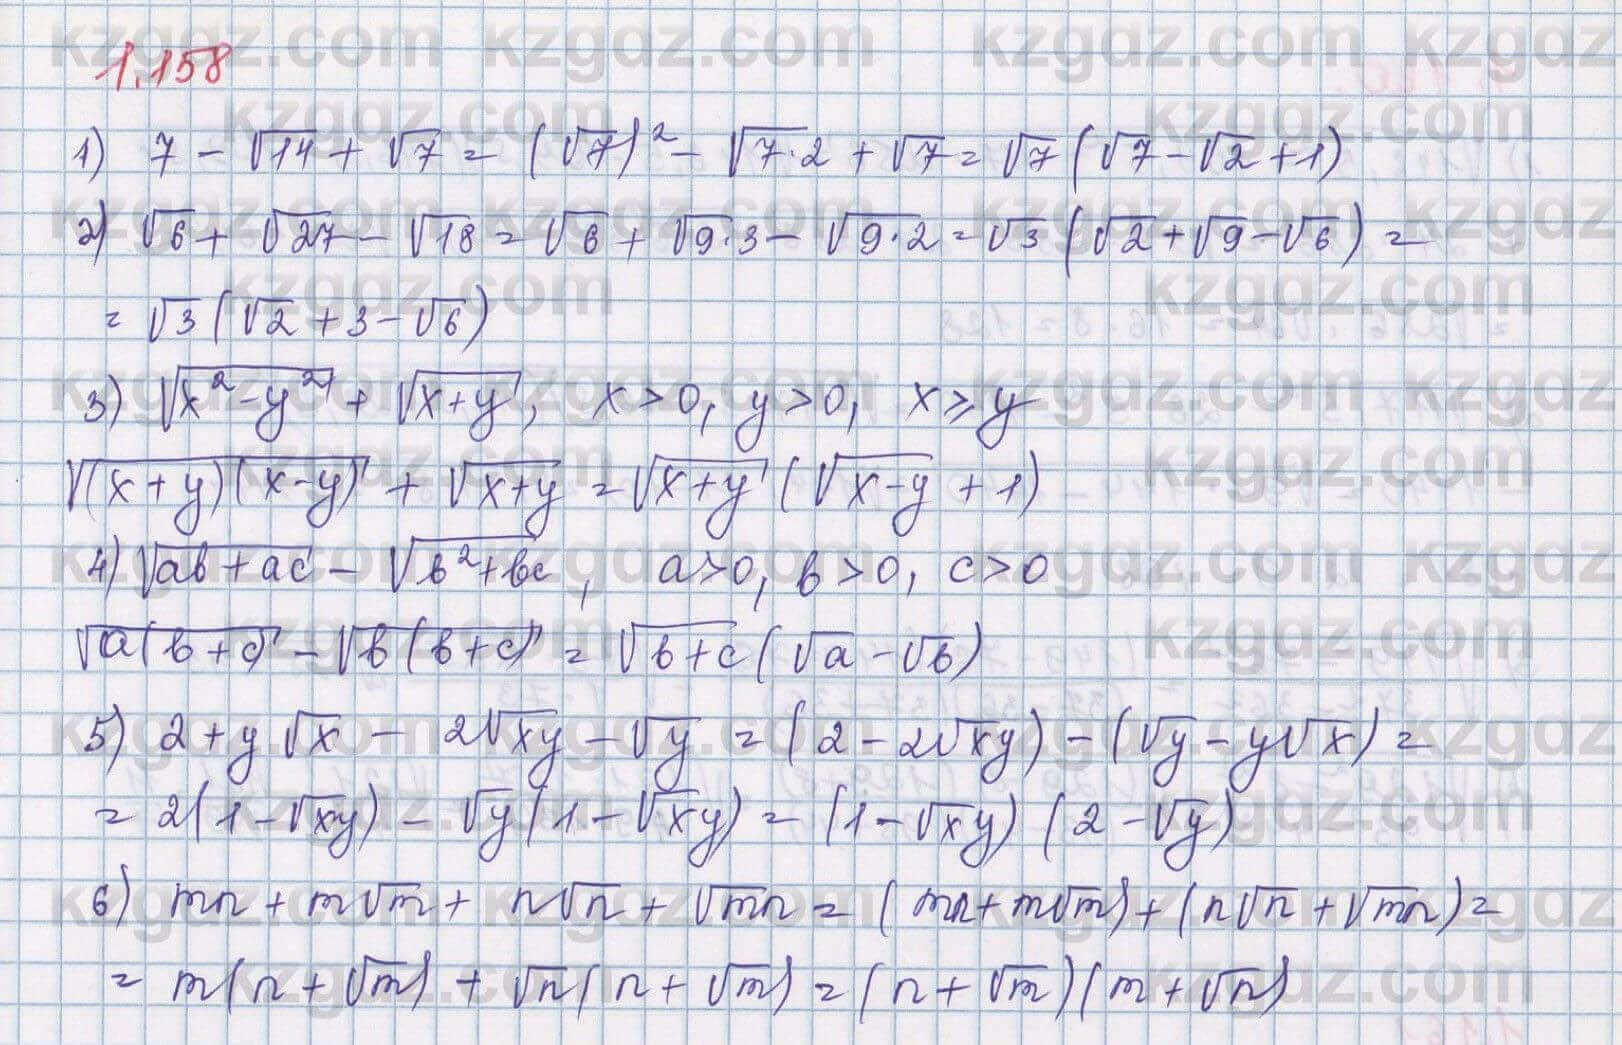 1.158
1) 7 - √14 + √7 = (√7)² - √7·2 + √7 = √7 (√7 - √2 + 1)
2) √6 + √27 - √18 = √6 + √9·3 - √9·2 = √3 (√2 + √9 - √6) =
= √3 (√2 + 3 - √6)
3) √x² - y² + √x + y, x > 0, y > 0, x ⩾ y
√(x + y)(x - y) + √x + y = √x + y (√x - y + 1)
4) √ав + ас - √в² + вс, а > 0, в > 0, с > 0
√а(в + с) - √в(в + с) = √в + с (√а - √в)
5) 2 + y√x - 2√xy - √y = (2 - 2√xy) - (√y - y√x) =
= 2(1 - √xy) - √y(1 - √xy) = (1 - √xy)(2 - √y)
6) mn + m√m + n√n + √mn = (mn + m√m) + (n√n + √mn) =
= m(n + √m) + √n(n + √m) = (n + √m)(m + √n)